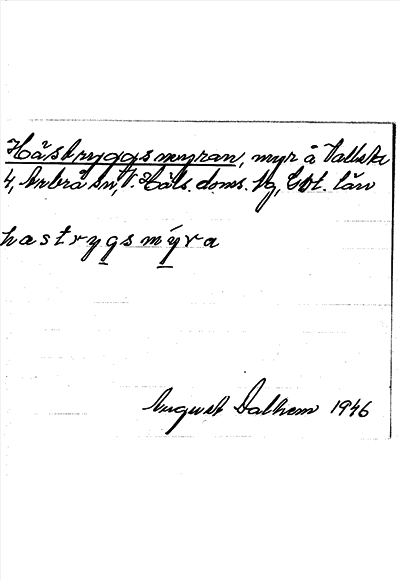 Hästryggsmyran, myr å Vallsta
4, Arbrå sn, V. Häls. doms. bg, Gbt. län
hastrygsmýra
August Dalhem 1946